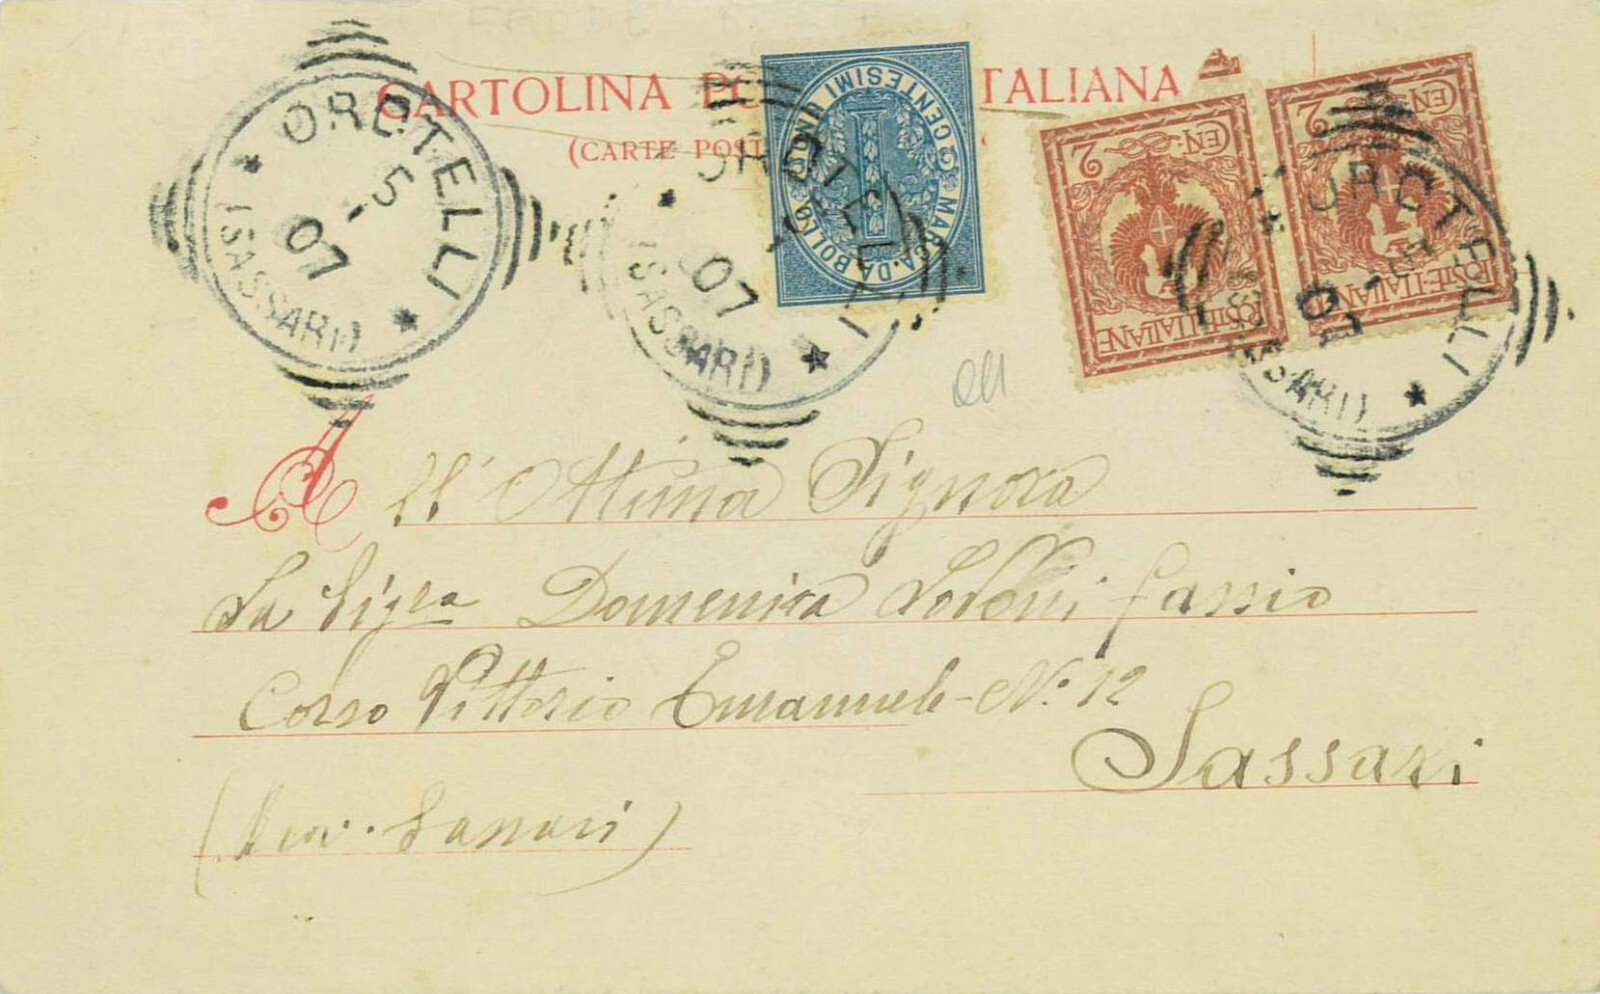 CARTOLINA PO TALIANA
(CARTE POST
OROTELLI
-5
07
(SASSARI)
OROTELLI
-5
07
(SASSARI)
MARCA. DA BOLLO
CENTESIMI UNO
1
2 CEN
POSTE ITALIANE
2 CEN
POSTE ITALIANE
OROTELLI
07
(SASSARI)
All' Ill.ma Signora
La Sig.ra Domenica
Corso Vittorio Emanuele - N.° 12
Sassari
Sassari)